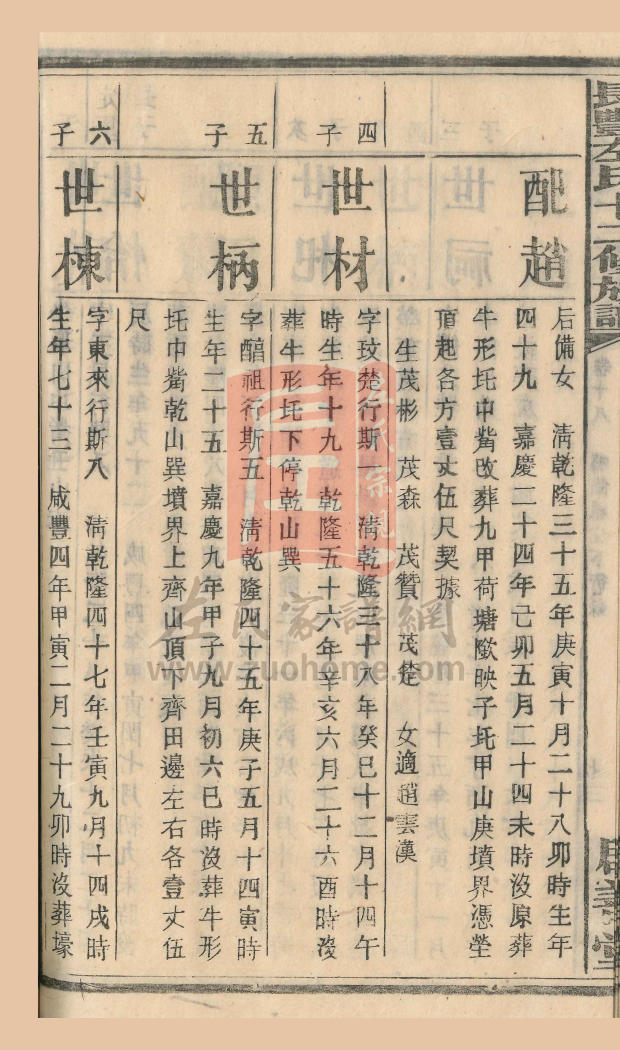 長豐左氏十二修族譜
卷十八
配趙
后備女　清乾隆三十五年庚寅十月二十八卯時生年
四十九　嘉慶二十四年己卯五月二十四未時沒原葬
牛形圫中觜改葬九甲荷塘墩映子圫甲山庚墳界憑塋
頂起各方壹丈伍尺契據
生茂彬　茂森　茂贊　茂楚　女適趙雲漢
四子
世材
字玟楚行斯一　清乾隆三十八年癸巳十二月十四午
時生年十九　乾隆五十六年辛亥六月二十六酉時沒
葬牛形圫下停乾山巽
五子
世柄
字醕祖行斯五　清乾隆四十五年庚子五月十四寅時
生年二十五　嘉慶九年甲子九月初六巳時沒葬牛形
圫中觜乾山巽墳界上齊山頂下齊田邊左右各壹丈伍
尺
六子
世棟
字東來行斯八　清乾隆四十七年壬寅九月十四戌時
生年七十三　咸豐四年甲寅二月二十九卯時沒葬壕
左氏家譜網
www.zuohome.com